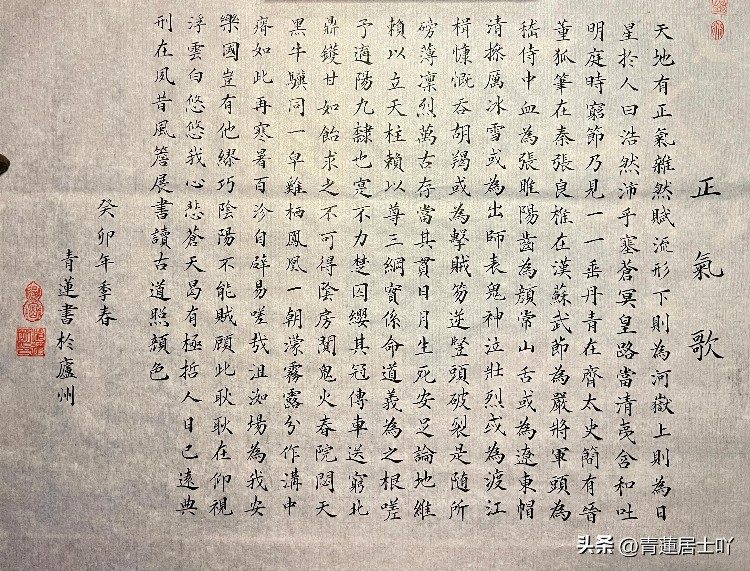 正氣歌
天地有正氣雜然賦流形下則為河嶽上則為日
星於人曰浩然沛乎塞蒼冥皇路當清夷含和吐
明庭時窮節乃見一一垂丹青在齊太史簡有晉
董狐筆在秦張良椎在漢蘇武節為嚴將軍頭為
嵇侍中血為張睢陽齒為顏常山舌或為遼東帽
清操厲冰雪或為出師表鬼神泣壯烈或為渡江
楫慷慨吞胡羯或為擊賊笏逆豎頭破裂是隨所
磅薄凜烈萬古存當其貫日月生死安足論地維
賴以立天柱賴以尊三綱實係命道義為之根嗟
予遘陽九隸也寔不力楚囚纓其冠傳車送窮北
鼎鑊甘如飴求之不可得陰房闃鬼火春院閟天
黑牛驥同一皁雞栖鳳凰一朝濛霧露分作溝中
瘠如此再寒暑百沴自辟易嗟哉沮洳場為我安
樂國豈有他繆巧陰陽不能賊顧此耿耿在仰視
浮雲白悠悠我心悲蒼天曷有極哲人日已遠典
刑在夙昔風簷展書讀古道照顏色
癸卯年季春
青蓮書於廬州
头条 @青蓮居士吖